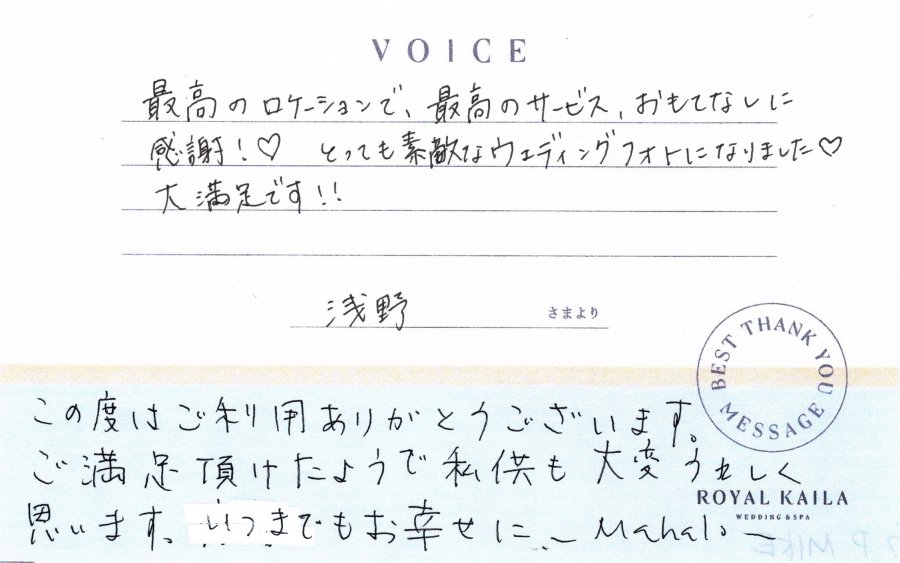 VOICE
最高のロケーションで、最高のサービス、おもてなしに
感謝！♡ とっても素敵なウェディングフォトになりました♡
大満足です！！
浅野 さまより
BEST THANK YOU MESSAGE
この度はご利用ありがとうございます。
ご満足頂けたようで私供も大変うれしく
思います。いつまでもお幸せに… ～Mahalo～
ROYAL KAILA
WEDDING & SPA
P MIKE